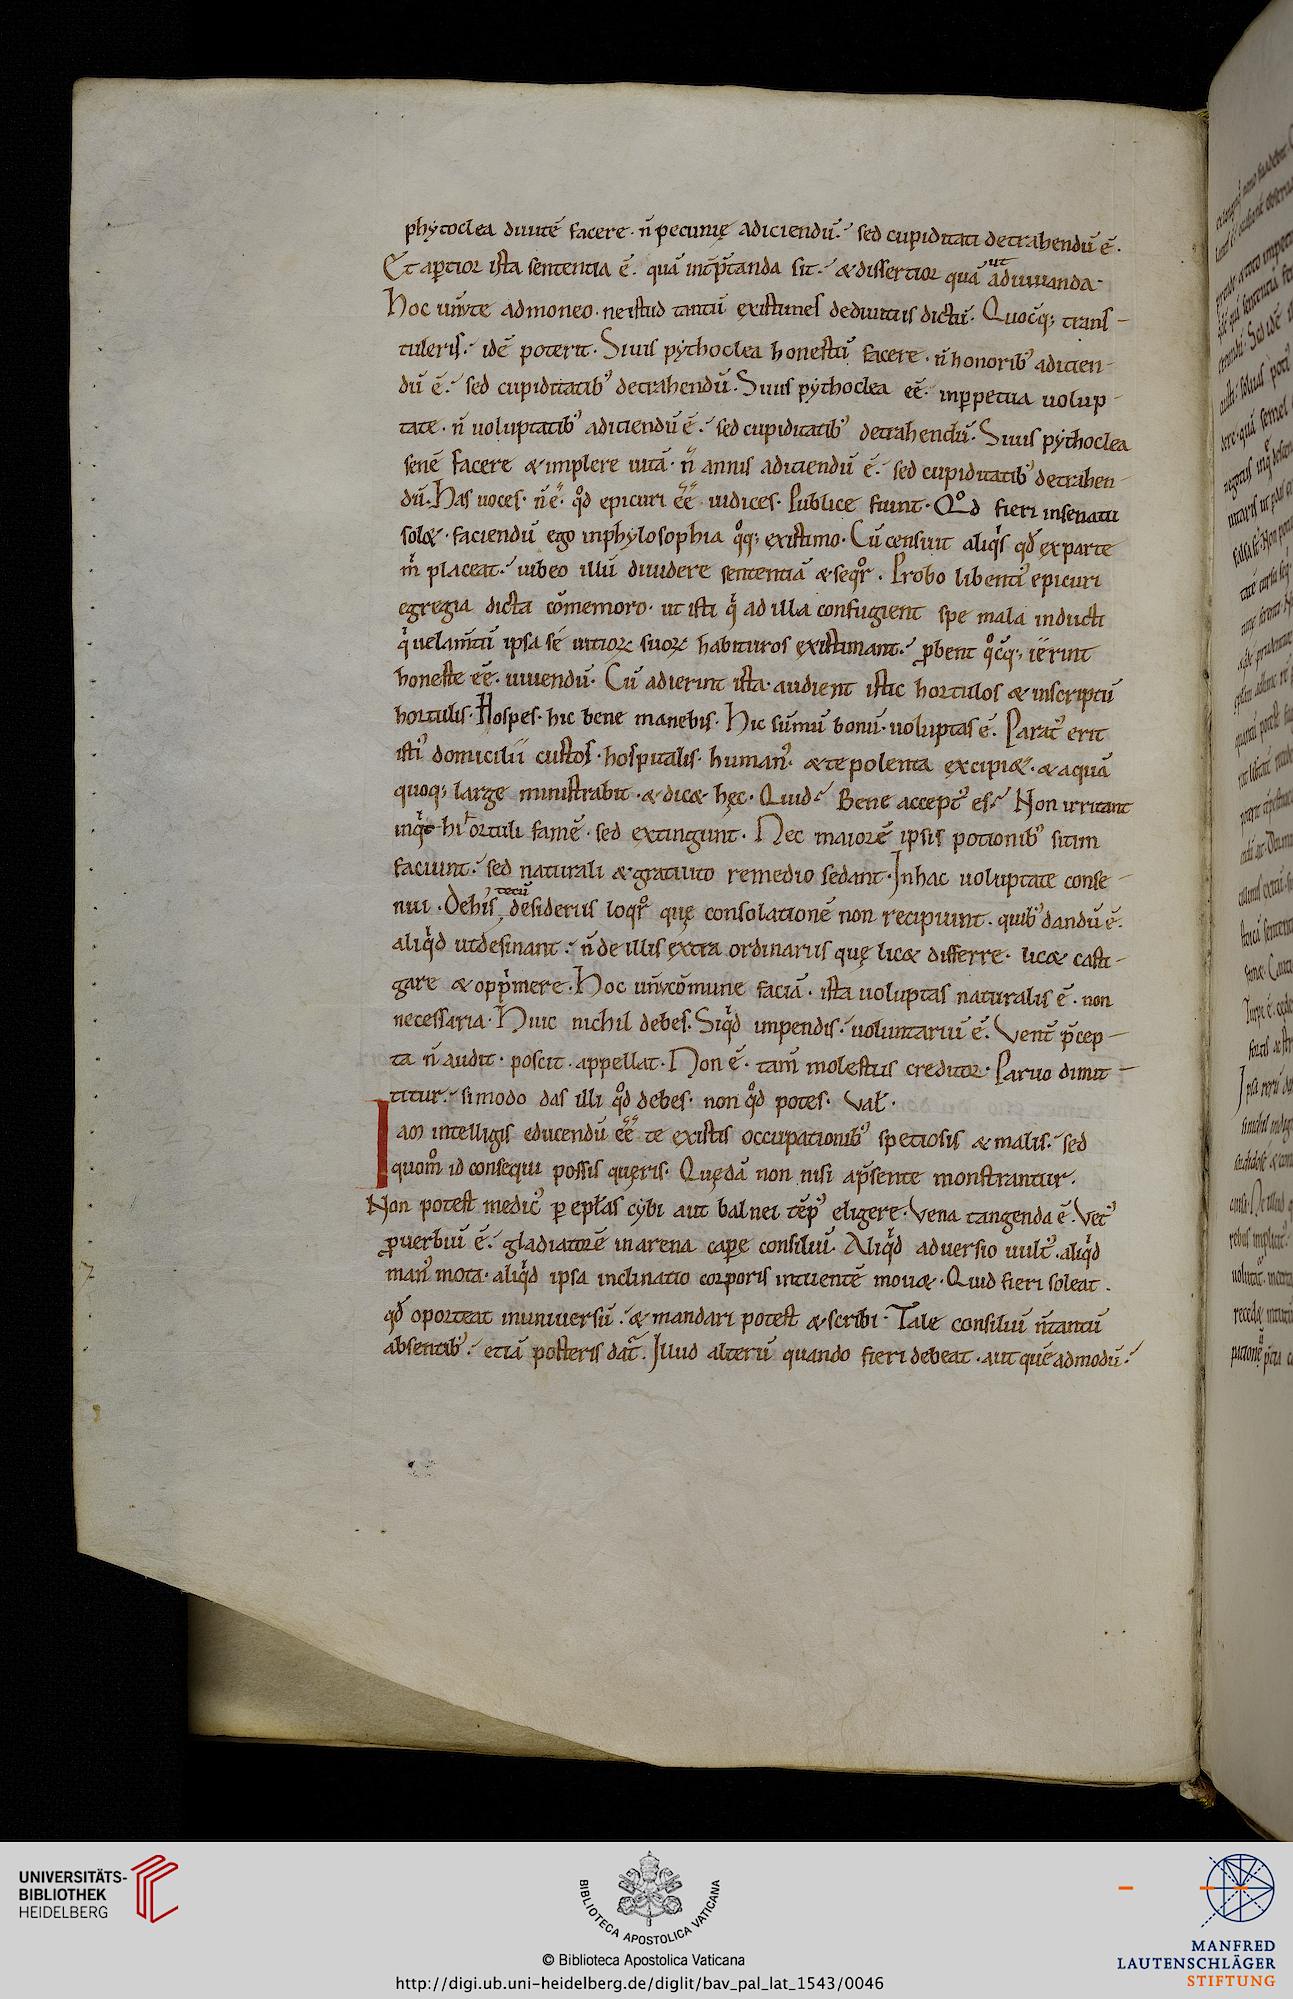 phẏtoclea diuitē facere · n̄ pecunię adiciendū · sed cupiditati detrahendū ē ·
Et aptior ista sententia ē · quā int̄p̄tanda sit · & dissertior quā ut adiuuanda ·
Hoc unũ te admoneo · ne istud tantū existimes de diuitiis dictū · Quocūq; trans-
tuleris · idē poterit · Siuis pẏthoclea honestū facere · n̄ honorib; adicien-
dū ē · sed cupiditatib; detrahendū · Siuis pẏthoclea ēē · inppetua uolup-
tate · n̄ uoluptatib; adiciendū ē · sed cupiditatib; detrahendū · Siuis pẏthoclea
senē facere & implere uitā · n̄ annis adiciendū ē · sed cupiditatib; detrahen-
dū · Has uoces · n̄ ē · qd epicuri ēē iudices · Publice fiunt · Qd fieri in senatu
sol& · faciendū ego inphẏlosophia qq; existimo · Cū censuit aliqs qd ex parte
m placeat · iubeo illū diuidere sententiā & seqr · Probo libenti epicuri
egregia dicta cōmemoro · ut isti q ad illa confugient spe mala inducti
q uelam̄tū ipsa se uitioꝝ suoꝝ habituros existimant · pbent qcūq; ierint
honeste ēē · uiuendū · Cū adierint ista · audient istic hortulos & inscriptū
hortulis · Hospes · hic bene manebis · Hic sūmū bonū · uoluptas ē · Parat erit
isti domicilii custos · hospitalis · human · & te polenta excipi& · & aquā
quoq; large ministrabit · & dic& hęc · Quid Bene accept es Non irritant
inqt hi ortuli famē · sed extingunt · Nec maiorē ipsis potionib; sitim
faciunt · sed naturali & gratuito remedio sedant · In hac uoluptate conse-
nui · De his tecū desideriis loqr quę consolationē non recipiunt · quib; dandū ē ·
aliqd ut desinant · n̄ de illis extra ordinariis quę lic& differre · lic& casti-
gare & opp̄mere · Hoc unũ cōmune faciā · ista uoluptas naturalis ē · non
necessaria · Huic nichil debes · Siqd impendis · uoluntariū ē · Vent p̄cep-
ta n̄ audit · poscit · appellat · Non ē · tam̄ molestus creditor · Paruo dimit-
titur · si modo das illi qd debes · non qd potes · Val ·
Iam intelligis educendū ēē te ex istis occupationib; spetiosis & malis · sed
quom id consequi possis quęris · Quędā non nisi ap̄sente monstrantur ·
Non potest medic p eplas cẏbi aut balnei tēp eligere · Vena tangenda ē · Vet
puerbiū ē · gladiatorē in arena cape consiliū · Aliqd aduersio uult · aliqd
man mota · aliqd ipsa inclinatio corporis intuentē mou& · Quid fieri soleat ·
qd oporteat in uniuersū · & mandari potest & scribi · Tale consiliū n̄ tantū
absentib; · etiā posteris dat · Illud alterū quando fieri debeat · aut quēadmodū ·
UNIVERSITÄTS-
BIBLIOTHEK
HEIDELBERG
BIBLIOTECA APOSTOLICA VATICANA
© Biblioteca Apostolica Vaticana
http://digi.ub.uni-heidelberg.de/diglit/bav_pal_lat_1543/0046
MANFRED
LAUTENSCHLÄGER
STIFTUNG